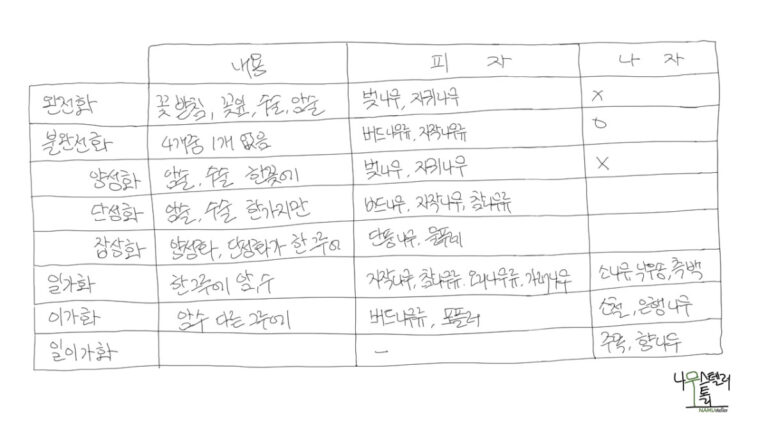 내용 피자 나자
완전화 꽃받침, 꽃잎, 수술, 암술 벚나무, 자귀나무 X
불완전화 4개중 1개 없음 버드나무류, 자작나무류 O
양성화 암술, 수술 한꽃에 벚나무, 자귀나무 X
단성화 암술, 수술 한가지만 버드나무, 자작나무, 참나무류
잡성화 양성화, 단성화가 한그루에 단풍나무, 물푸레
일가화 한그루에 암,수 자작나무, 참나무류, 오리나무류, 가래나무 소나무, 낙우송, 측백
이가화 암수 다른그루에 버드나무류, 포플러 소철, 은행나무
일이가화 - 주목, 향나무
나무스텔러
트리
NAMUsteller